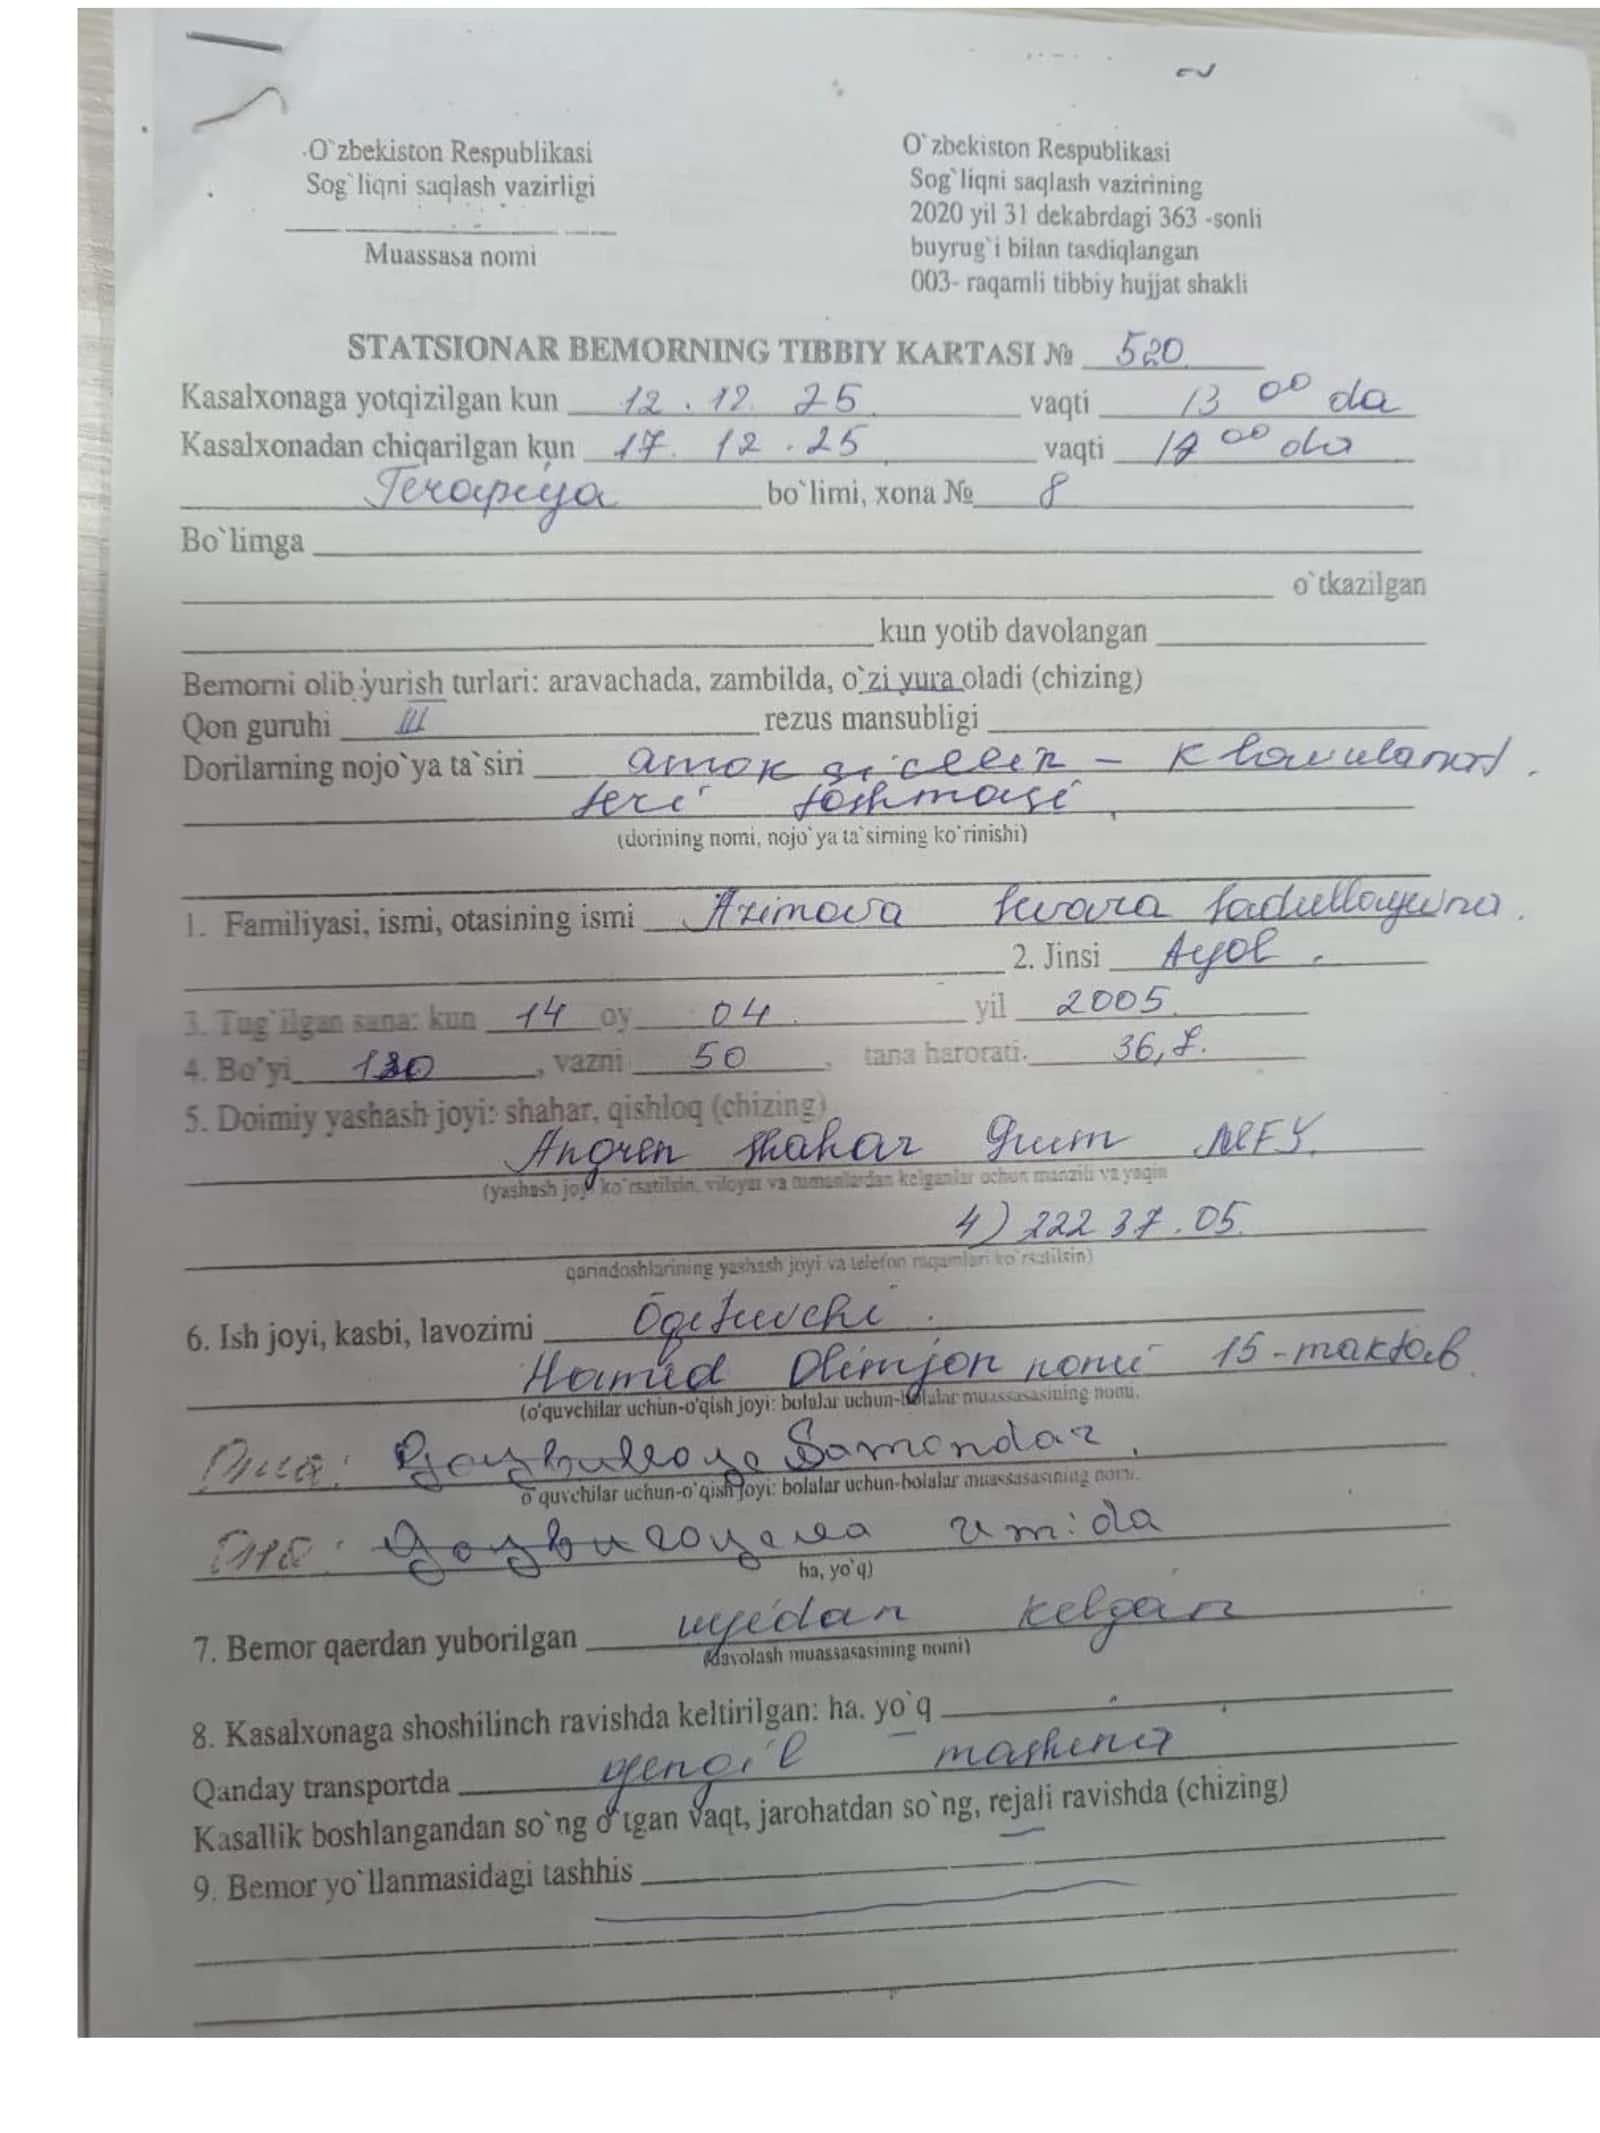 O`zbekiston Respublikasi
Sog`liqni saqlash vazirligi
Muassasa nomi
O`zbekiston Respublikasi
Sog`liqni saqlash vazirining
2020 yil 31 dekabrdagi 363 -sonli
buyrug`i bilan tasdiqlangan
003- raqamli tibbiy hujjat shakli
STATSIONAR BEMORNING TIBBIY KARTASI № 520
Kasalxonaga yotqizilgan kun 12.12.25 vaqti 13 00 da
Kasalxonadan chiqarilgan kun 17.12.25 vaqti 00 da
Terapiya bo`limi, xona № 8
Bo`limga
o`tkazilgan
kun yotib davolangan
Bemorni olib yurish turlari: aravachada, zambilda, o`zi yura oladi (chizing)
Qon guruhi III rezus mansubligi
Dorilarning nojo`ya ta`siri amoksicillin -
teri toshmasi
(dorining nomi, nojo`ya ta`sirning ko`rinishi)
1. Familiyasi, ismi, otasining ismi Azimova Sadullayevna
2. Jinsi Ayol
3. Tug`ilgan sana: kun 14 oy 04 yil 2005
4. Bo'yi , vazni 50, tana harorati. 36,8.
5. Doimiy yashash joyi: shahar, qishloq (chizing)
Angren shahar Grum MFY.
(yashash joyi ko`rsatilsin, viloyat va tumanlardan kelganlar uchun manzili va yaqin
4) 222 37.05.
qarindoshlarining yashash joyi va telefon raqamlari ko`rsatilsin)
6. Ish joyi, kasbi, lavozimi Oqituvchi
Hamid Olimjon nomi 15-maktab
(o'quvchilar uchun-o'qish joyi: bolalar uchun-bolalar muassasasining nomi.
Samandar
o`quvchilar uchun-o`qish joyi: bolalar uchun-bolalar muassasasining nomi.
Umida
ha, yo`q)
7. Bemor qaerdan yuborilgan uyidan kelgan
(davolash muassasasining nomi)
8. Kasalxonaga shoshilinch ravishda keltirilgan: ha. yo`q
Qanday transportda yengil mashina
Kasallik boshlangandan so`ng o`tgan vaqt, jarohatdan so`ng, rejali ravishda (chizing)
9. Bemor yo`llanmasidagi tashhis